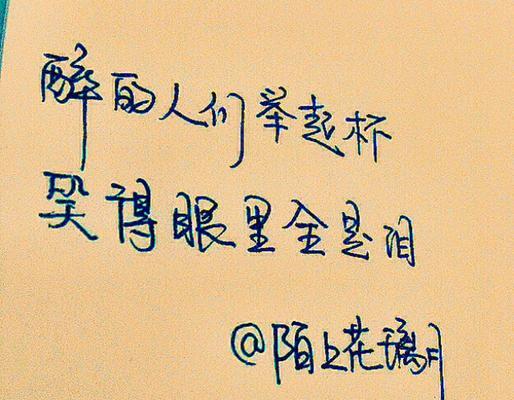 醉的人们举起杯
哭得眼里全是泪
@陌上花璃月